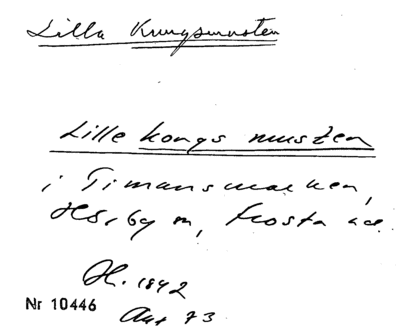 Lilla Kungsmosten
Lille kongs musten
i Timansmarken,
Hörby sn, Frosta hd.
H. 1842
Akt 73
Nr 10446